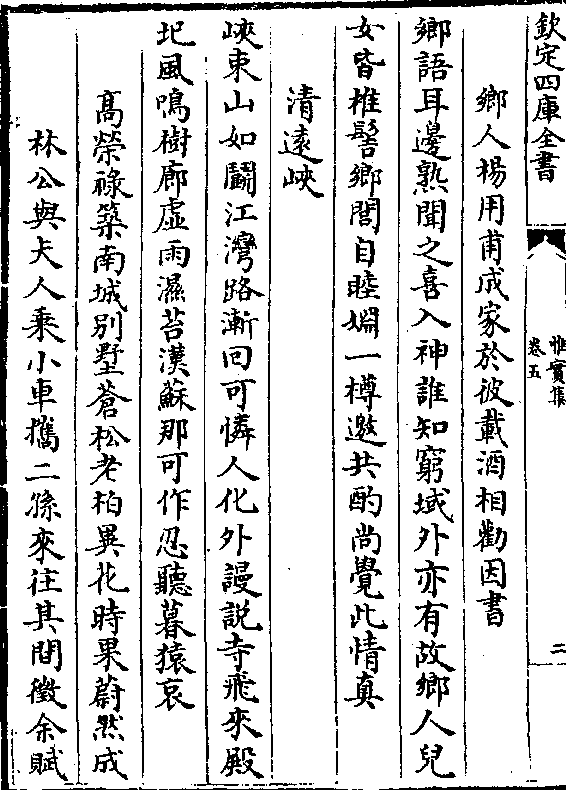 欽定四庫全書
惟實集
卷五
二
鄉人楊用甫成家於彼載酒相勸因書
鄉語耳邊熟聞之喜入神誰知窮域外亦有故鄉人兒
女皆椎髻鄉閭自睦婣一樽邀共酌尚覺此情真
清遠峽
峽束山如鬬江灣路漸回可憐人化外謾説寺飛來殿
圯風鳴樹廊虛雨濕苔漢蘇那可作忍聽暮猿哀
高榮祿築南城别墅蒼松老柏異花時果蔚然成
林公與夫人乘小車攜二孫來往其間徵余賦